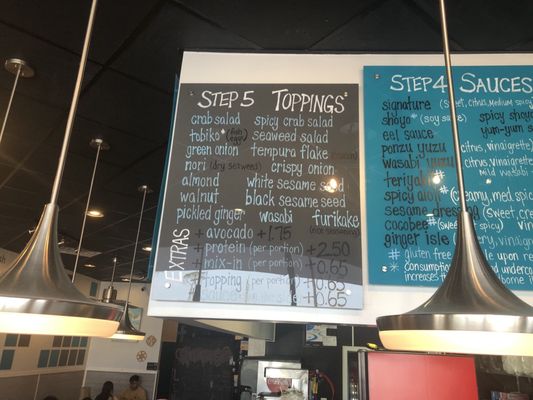 STEP 5 TOPPINGS
crab salad spicy crab salad
tobiko (fish egg) seaweed salad
green onion tempura flake
nori (dry seaweed) crispy onion
almond white sesame seed
walnut black sesame seed
pickled ginger wasabi furikake
EXTRAS
+ avocado +1.75
+ protein (per portion) +2.50
+ mix-in (per portion) +0.65
topping (per portion) +0.65
(per portion) +0.65
STEP 4 SAUCES
signature (sweet, citrus, medium spicy
shoyo (soy sauce) spicy shoyo
eel sauce yum-yum
ponzu yuzu citrus, vinaigrette
wasabi yuzu citrus, vinaigrette
mild wasabi
teriyaki
spicy aioli (creamy, med spic
sesame dressing (sweet, cre
cocobee (sweet, spicy)
ginger isle
gluten free upon re
consumption underco
increases